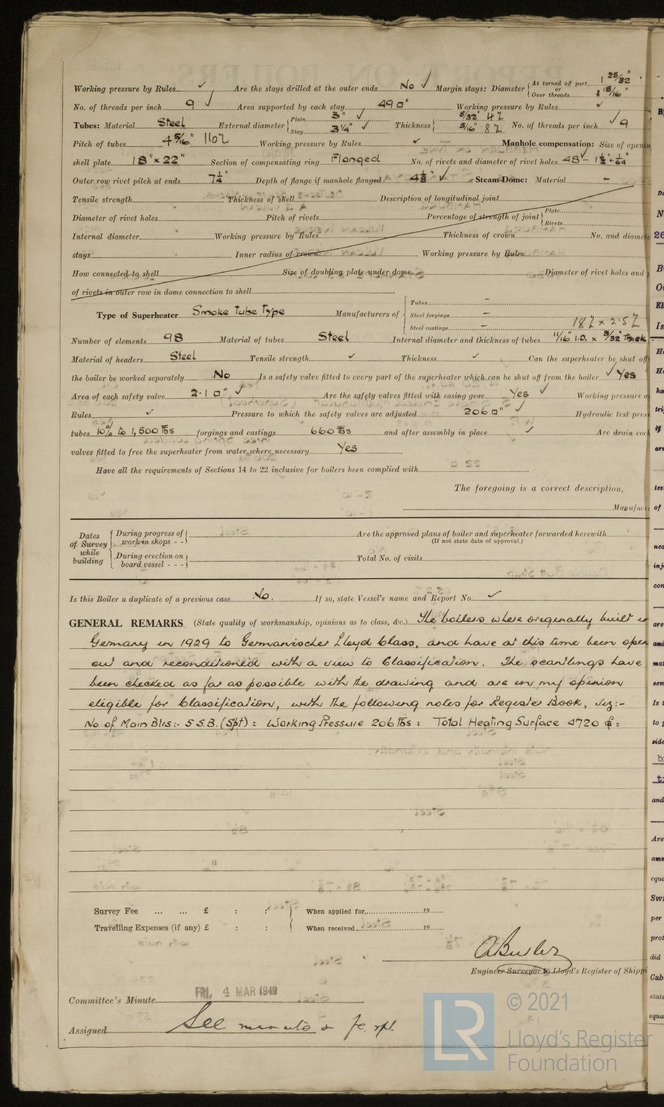 Working pressure by Rules ✓ Are the stays drilled at the outer ends No ✓ Margin stays: Diameter { At turned off part 1 25/32"
Over threads 1 15/16"
No. of threads per inch 9 ✓ Area supported by each stay 49□" Working pressure by Rules ✓
Tubes: Material Steel External diameter { Plain 3" ✓ Thickness { 5/32" 4% No. of threads per inch ✓ 9
Stay 3¼" ✓ 5/16" 8%
Pitch of tubes 4 5/16" Working pressure by Rules ✓ Manhole compensation: Size of openin
shell plate 18" x 22" Section of compensating ring Flanged No. of rivets and diameter of rivet holes 48
Outer row rivet pitch at ends 7¼" Depth of flange if manhole flanged ✓ Steam Dome: Material –
Tensile strength Thickness of shell Description of longitudinal joint
Diameter of rivet holes Pitch of rivets Percentage of strength of joint { Plate
Rivets
Internal diameter Working pressure by Rules Thickness of crown No. and diamete
stays Inner radius of crown Working pressure by Rules
How connected to shell Size of doubling plate under dome Diameter of rivet holes and
of rivets in outer row in dome connection to shell
Type of Superheater Smoke Tube Type Manufacturers of { Tubes –
Steel forgings –
Steel castings –
Number of elements 98 Material of tubes Steel Internal diameter and thickness of tubes 11/16" I.D. x 3/32" Thick
Material of headers Steel Tensile strength ✓ Thickness ✓ Can the superheater be shut off
the boiler be worked separately No Is a safety valve fitted to every part of the superheater which can be shut off from the boiler ✓ Yes
Area of each safety valve 2·1□" ✓ Are the safety valves fitted with easing gear Yes Working pressure a
Rules ✓ Pressure to which the safety valves are adjusted 206□" ✓ Hydraulic test press
tubes to 1,500 lbs forgings and castings 660 lbs and after assembly in place ✓ Are drain coc
valves fitted to free the superheater from water where necessary Yes
Have all the requirements of Sections 14 to 22 inclusive for boilers been complied with
The foregoing is a correct description,
Manufac
Dates of Survey while building { During progress of work in shops - - } Are the approved plans of boiler and superheater forwarded herewith
(If not state date of approval.)
{ During erection on board vessel - - - } Total No. of visits
Is this Boiler a duplicate of a previous case No. If so, state Vessel's name and Report No. ✓
GENERAL REMARKS (State quality of workmanship, opinions as to class, &c.) The boilers where originally built in
Germany in 1929 to Germanischer Lloyd Class, and have at this time been open
out and reconditioned with a view to Classification. The scantlings have
been checked as far as possible with the drawing and are in my opinion
eligible for Classification, with the following notes for Register Book, viz:-
No of Main Blrs:- 5 S.B. (Spt): Working Pressure 206 lbs: Total Heating Surface 4720
Survey Fee ... ... £ : : } When applied for 19
Travelling Expenses (if any) £ : : } When received 19
A Butler
Engineer Surveyor to Lloyd's Register of Shippi
Committee's Minute FRI. 4 MAR 1949
Assigned See minute on
© 2021
Lloyd's Register
Foundation
LR